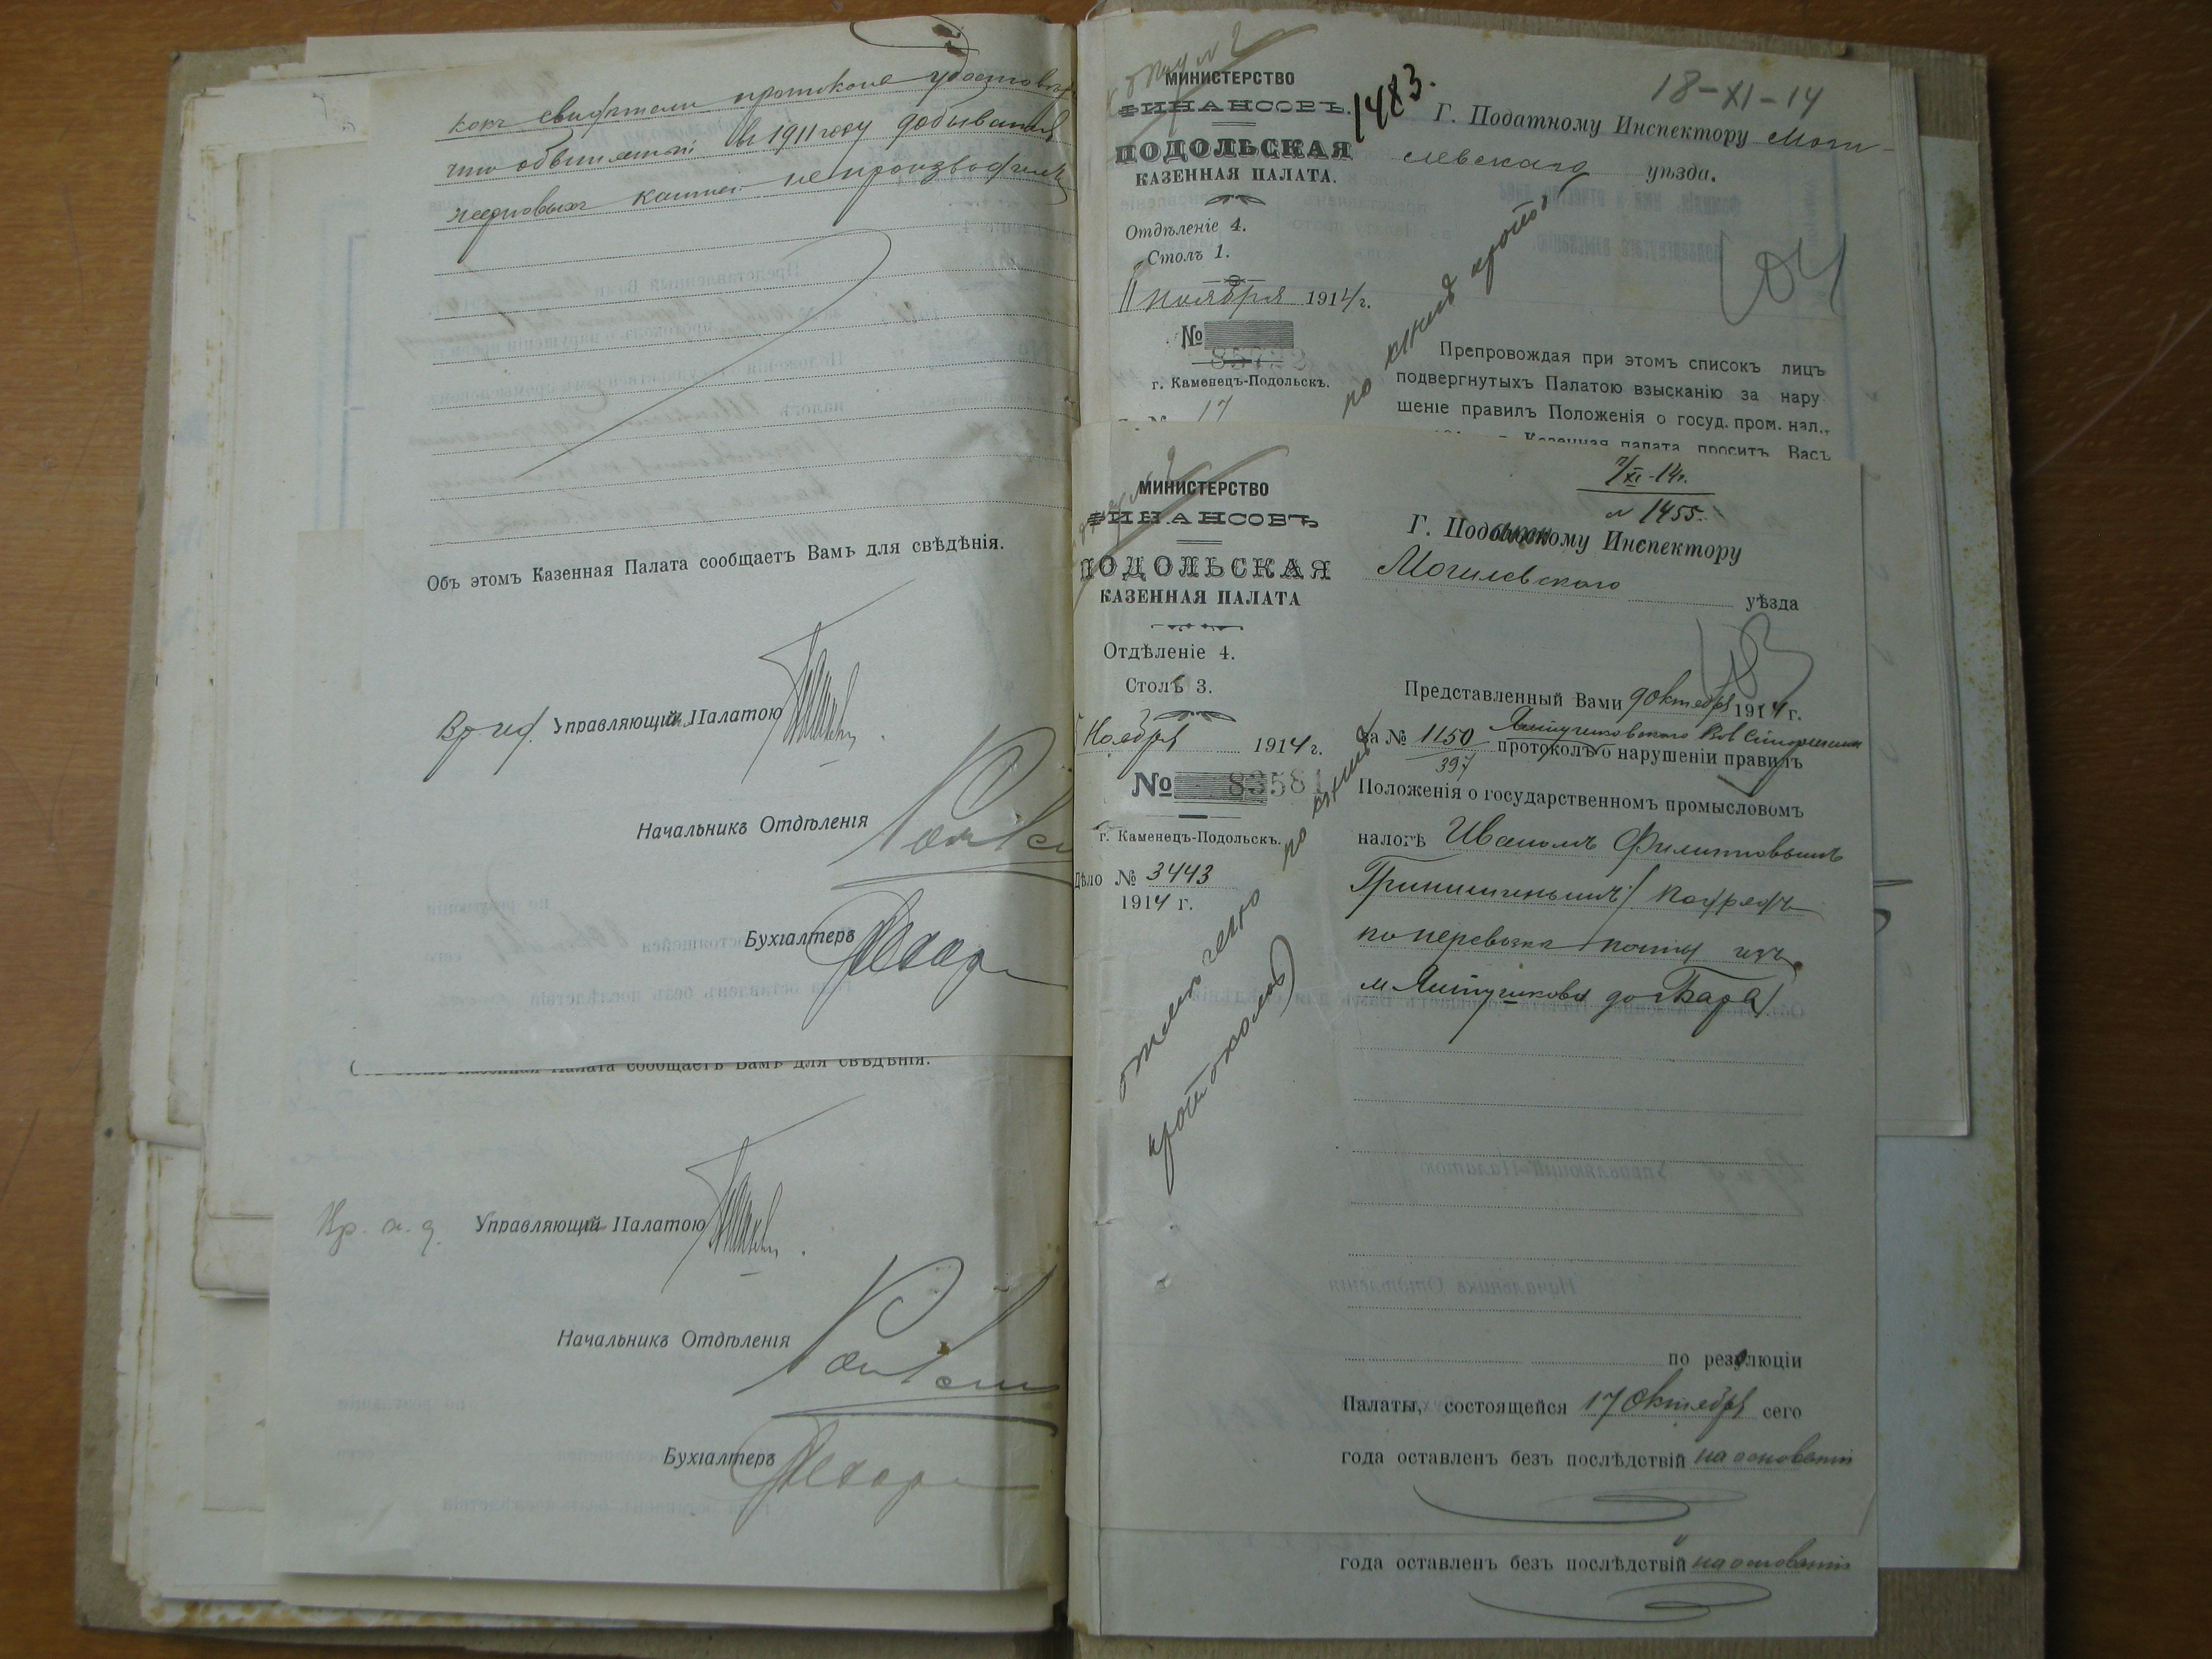 какъ свидѣтели протокола удостовѣр
что обвиняемый въ 1911 году добыванія
жерновыхъ камней не производилъ
Объ этомъ Казенная Палата сообщаетъ Вамъ для свѣдѣнія.
Вр. и. д. Управляющій Палатою
Начальникъ Отдѣленія
Бухгалтеръ
Казенная Палата сообщаетъ Вамъ для свѣдѣнія.
Вр. и. д. Управляющій Палатою
Начальникъ Отдѣленія
Бухгалтеръ
МИНИСТЕРСТВО
ФИНАНСОВЪ.
ПОДОЛЬСКАЯ
КАЗЕННАЯ ПАЛАТА.
Отдѣленіе 4.
Столъ 1.
11 ноября 1914 г.
№ 85722
г. Каменецъ-Подольскъ.
17
1483.
18-XI-14
Г. Податному Инспектору Моги-
левскаго уѣзда.
104
по книгѣ
Препровождая при этомъ списокъ лицъ
подвергнутыхъ Палатою взысканію за нару
шеніе правилъ Положенія о госуд. пром. нал.,
Казенная палата проситъ Васъ
МИНИСТЕРСТВО
ФИНАНСОВЪ
ПОДОЛЬСКАЯ
КАЗЕННАЯ ПАЛАТА
Отдѣленіе 4.
Столъ 3.
Ноября 1914 г.
№ 83581
г. Каменецъ-Подольскъ.
Дѣло № 3443
1914 г.
отмечено по книгѣ
протоколовъ
7/XI-14г.
№ 1455.
Г. Податному Инспектору
Могилевскаго уѣзда
103
Представленный Вами 9 Октября 1914 г.
за № 1150/397 Ялтушковскаго Вол Старшины протоколъ о нарушеніи правилъ
Положенія о государственномъ промысловомъ
налогѣ Иваномъ Филипповымъ
Гринишенымъ (подрядъ
по перевозкѣ почты изъ
м Ялтушкова до Бара)
по резолюціи
Палаты, состоящейся 17 Октября сего
года оставленъ безъ послѣдствій на основаніи
года оставленъ безъ послѣдствій на основаніи